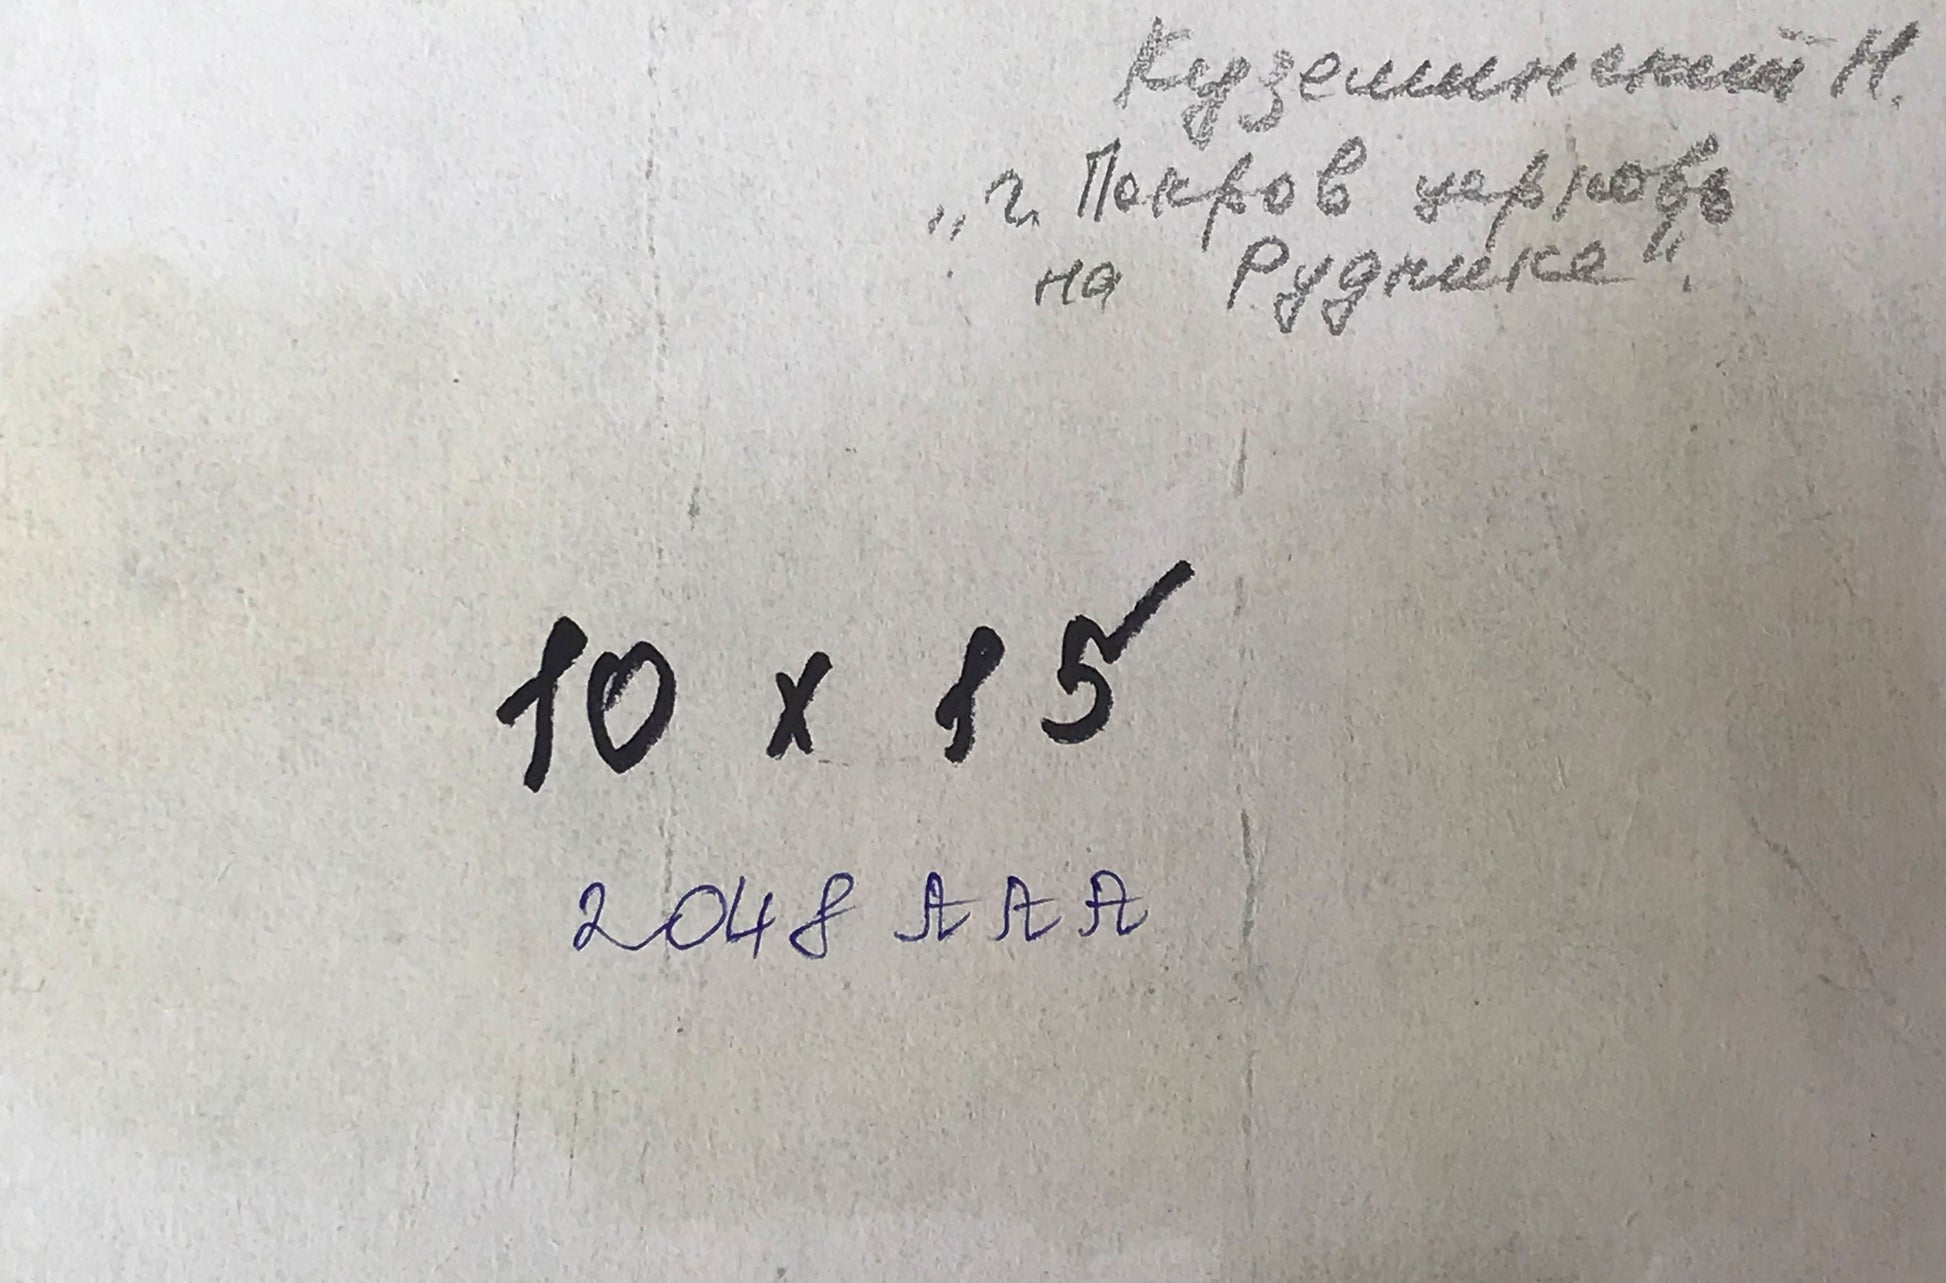 Куземинский Н.
„г. Покров церковь
на Руднике".
10 x 15
2048 AAA